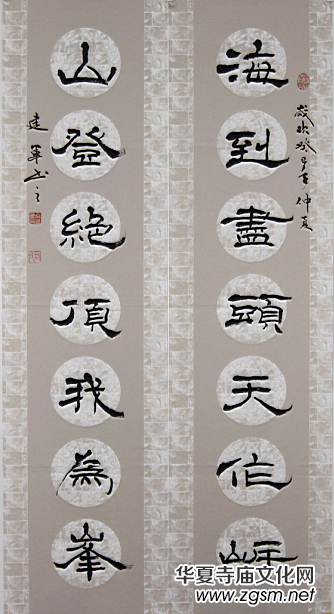 歲次癸巳年仲夏
海到盡頭天作岸
山登絶頂我為峯
建軍书之
华夏寺庙文化网
www.zgsm.net